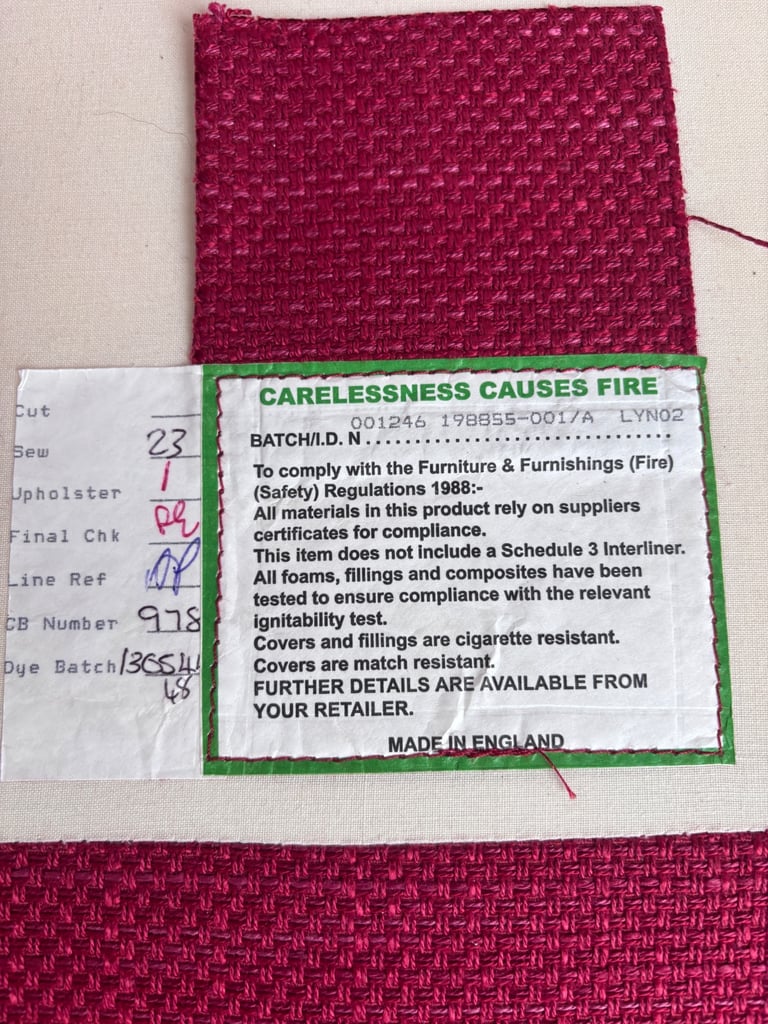 Cut
Sew 23
Upholster 1
Final Chk
Line Ref
CB Number 978
Dye Batch
48
CARELESSNESS CAUSES FIRE
001246 198855-001/A LYN02
BATCH/I.D. N..............................
To comply with the Furniture & Furnishings (Fire)
(Safety) Regulations 1988:-
All materials in this product rely on suppliers
certificates for compliance.
This item does not include a Schedule 3 Interliner.
All foams, fillings and composites have been
tested to ensure compliance with the relevant
ignitability test.
Covers and fillings are cigarette resistant.
Covers are match resistant.
FURTHER DETAILS ARE AVAILABLE FROM
YOUR RETAILER.
MADE IN ENGLAND